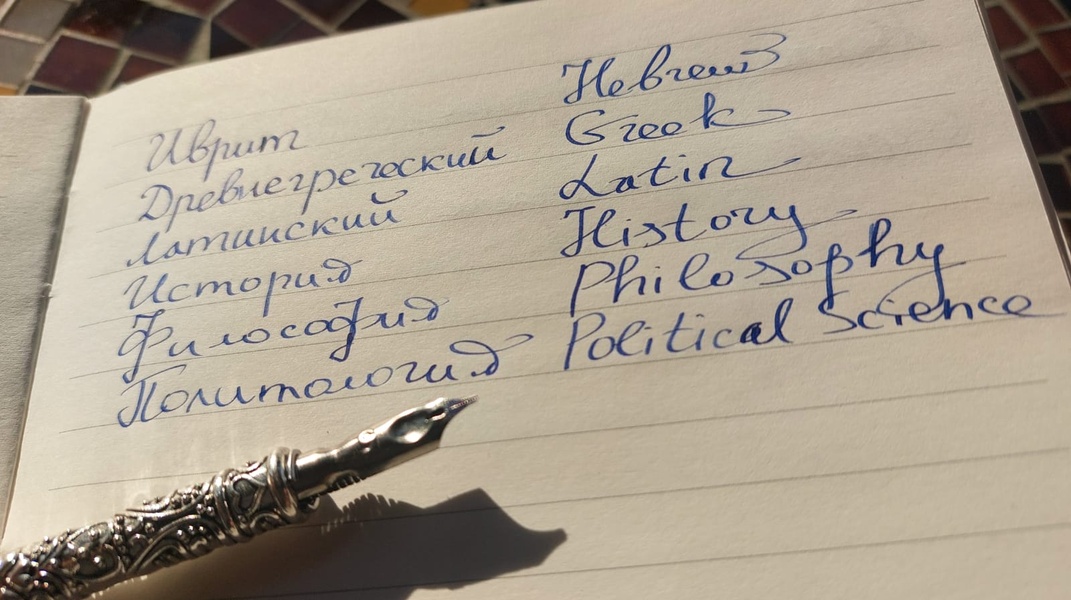 Иврит Hebrew
Древнегреческий Greek
Латинский Latin
История History
Философия Philosophy
Политология Political Science